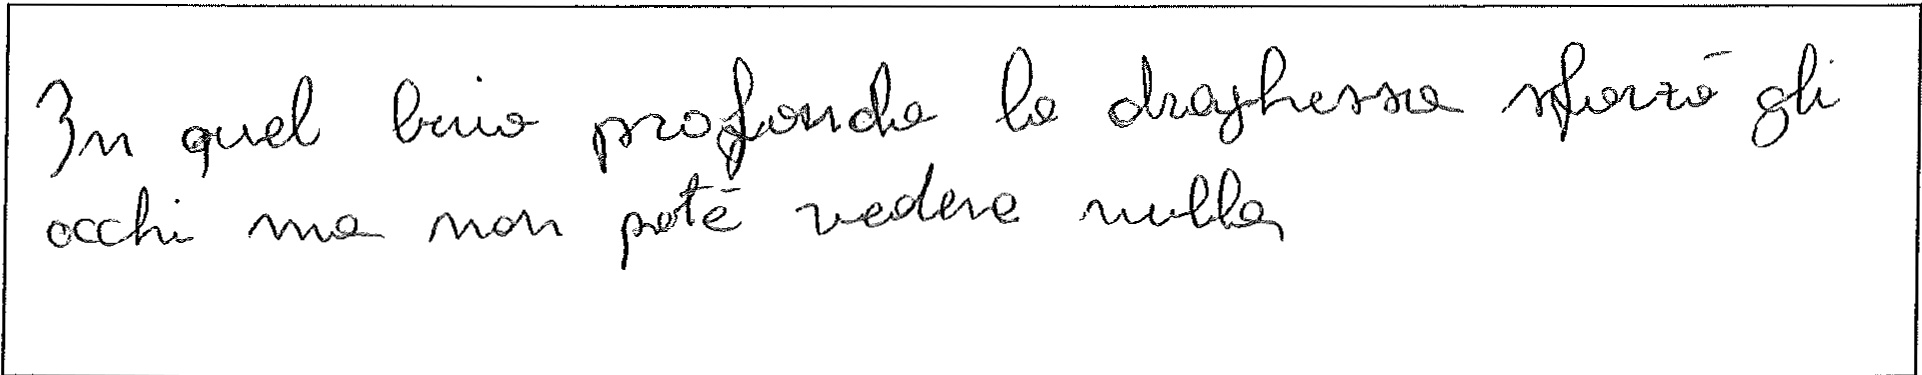 In quel buio profondo la draghessa sforzò gli
occhi ma non poté vedere nulla,